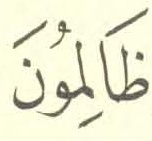 ظَالِمُونَ